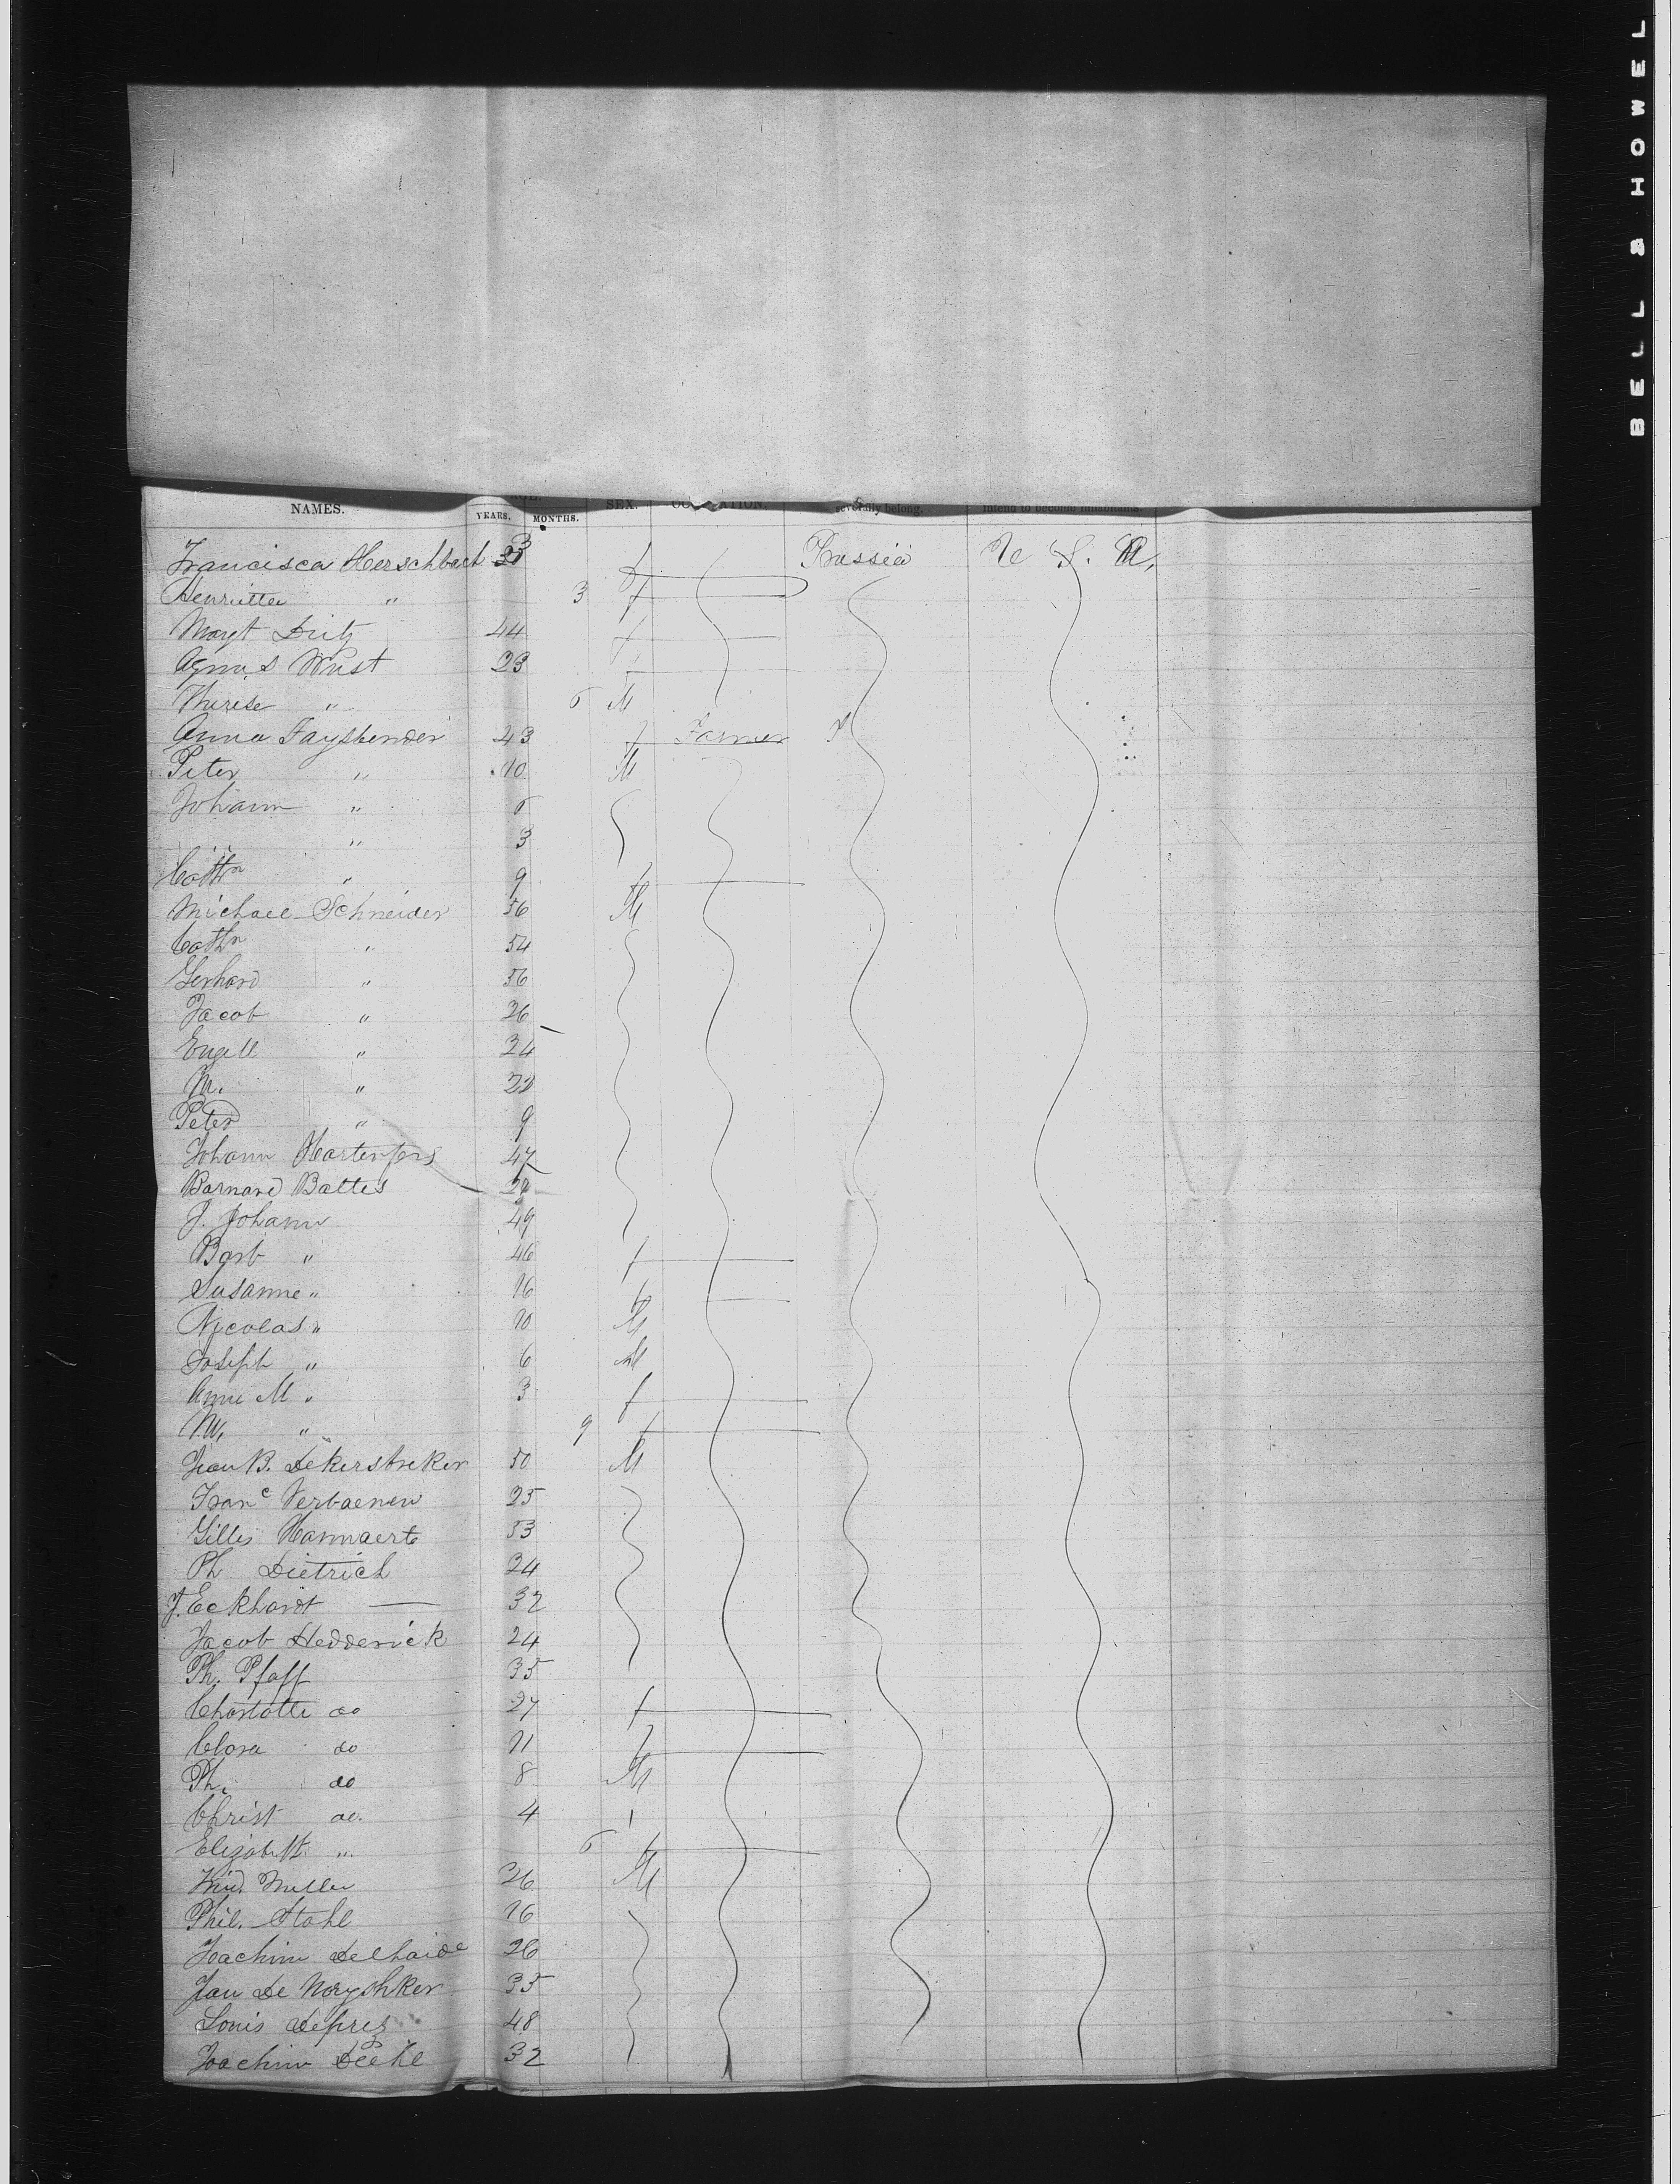 NAMES. YEARS. MONTHS. SEX. severally belong. intend to become inhabitants.
Francisca Herschbach f Prussia U. S. A.
Henriette " 3 f
Margt Dietz 44 f
Agnes Wust 23 f
Therese " 6 M
Anna Faysbender 43 f Farmer
Peter " 10 M
Johann " 6
" " 3
Cathn " 9 f
Michael Schneider 56 M
Cathn " 54
Gerhard " 56
Jacob " 26
Engell " 24
M. " 22
Peter " 9
Johann Hartenfers 47
Barnard Battes
J. Johann 49
Barb " 46 f
Susanne " 16 f
Nicolas " 10 M
Joseph " 6 M
Anne M " 3 f
M. " 9 f
Jean B. Dekerstreker 50 M
Franc Verbaenen 25
Gilles Hannaert 53
Ph Dietrich 24
J. Eckhardt — 32
Jacob Hedderick 24
Ph. Pfaff 35
Charlotte do 27 f
Clara do 11 f
Ph. do 8 M
Christ do. 4
Elizabeth " 6 f
Miller 26 M
Phil. Stahl 16
Joachim Delhaide 26
Jan De 35
Louis Deprez 48
Joachim 32
BELL & HOWEL